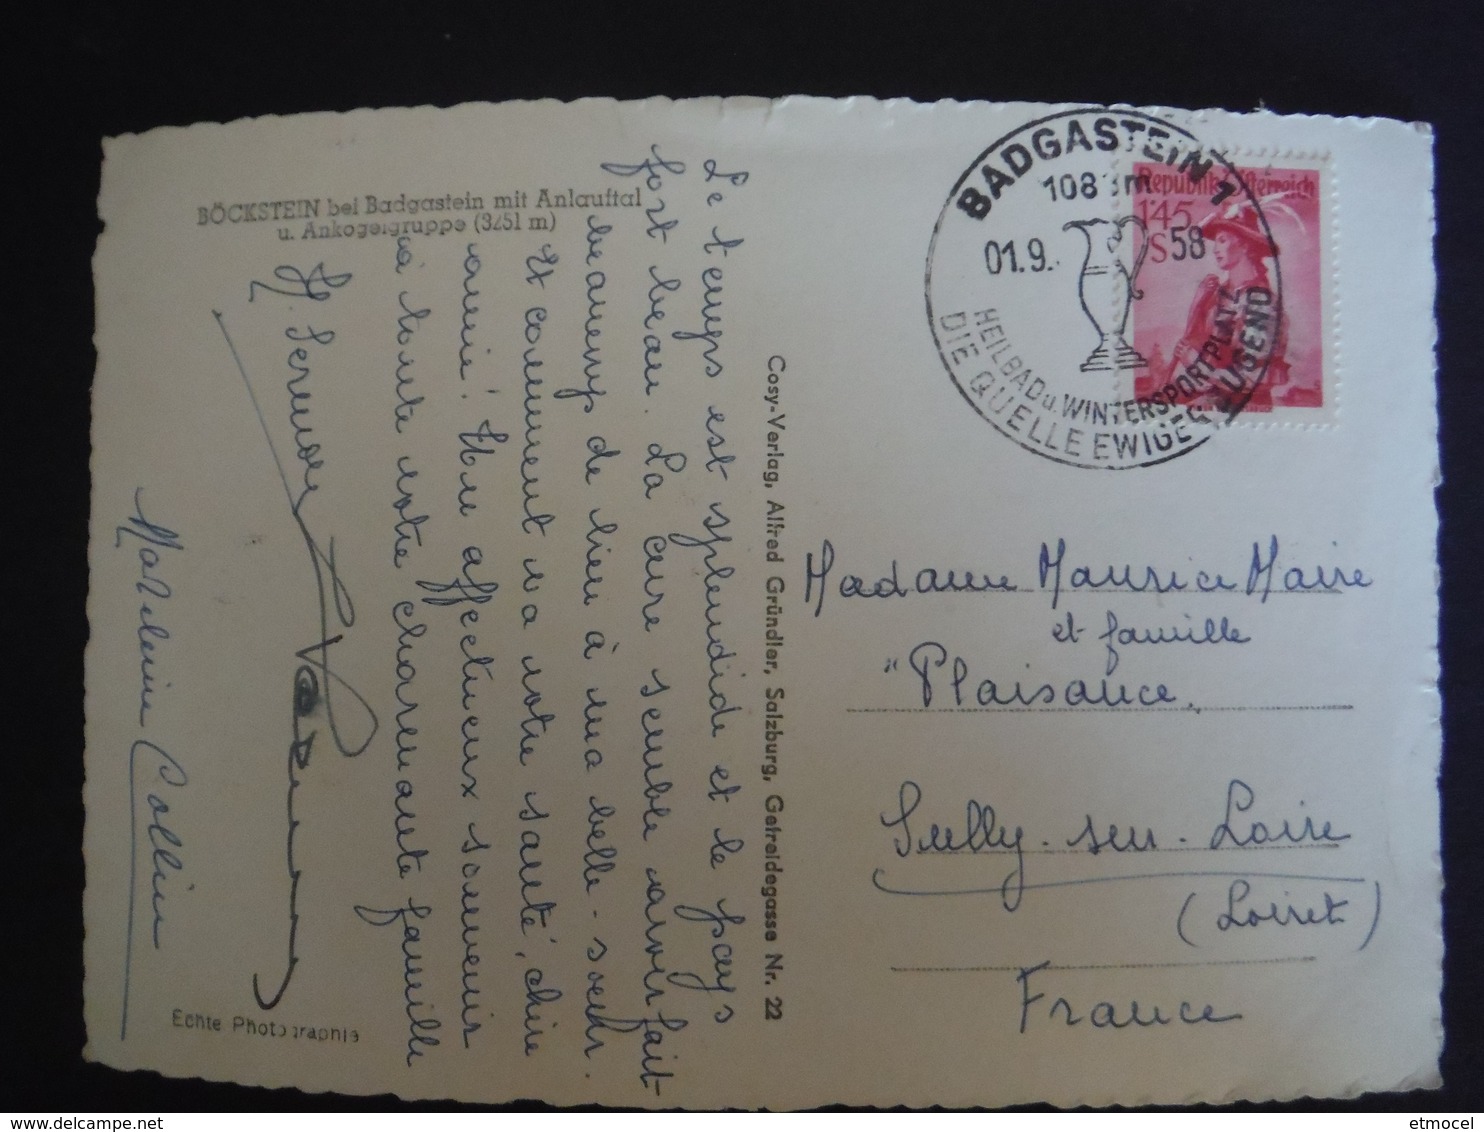 BÖCKSTEIN bei Badgastein mit Anlauftal
u. Ankogelgruppe (3251 m)
Le temps est splendide et le pays
fort beau. La cure semble avoir fait
beaucoup de bien à ma belle-soeur.
Et comment va votre santé, chère
amie? Mon affectueux souvenir
à toute votre charmante famille
Madeleine Collin
Echte Photographie
Cosy-Verlag, Alfred Gründler, Salzburg, Getreidegasse Nr. 22
BADGASTEIN 1
1083 m
01.9. 58
HEILBAD u. WINTERSPORTPLATZ
DIE QUELLE EWIGER JUGEND
Republik Österreich
1'45
S
Madame Maurice Maire
et famille
"Plaisance"
Sully-sur-Loire
(Loiret)
France
etmocel